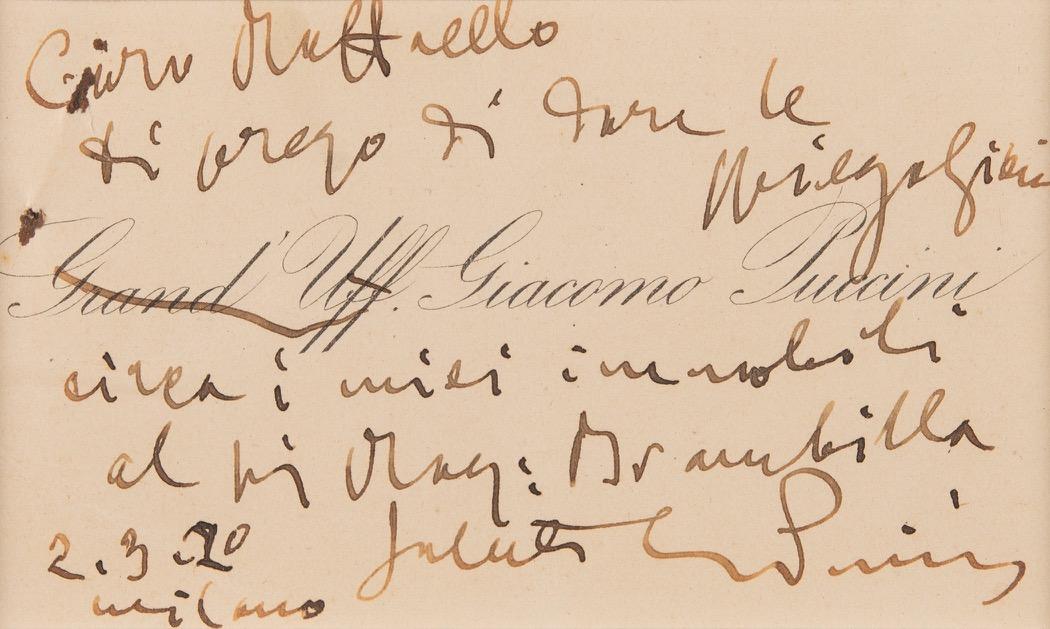 Caro Raffaello
ti prego di dare le
spiegazioni
Grand' Uff. Giacomo Puccini
circa i miei immobili
al sig Rag: Brambilla
Saluti Puccini
2.3.20
milano